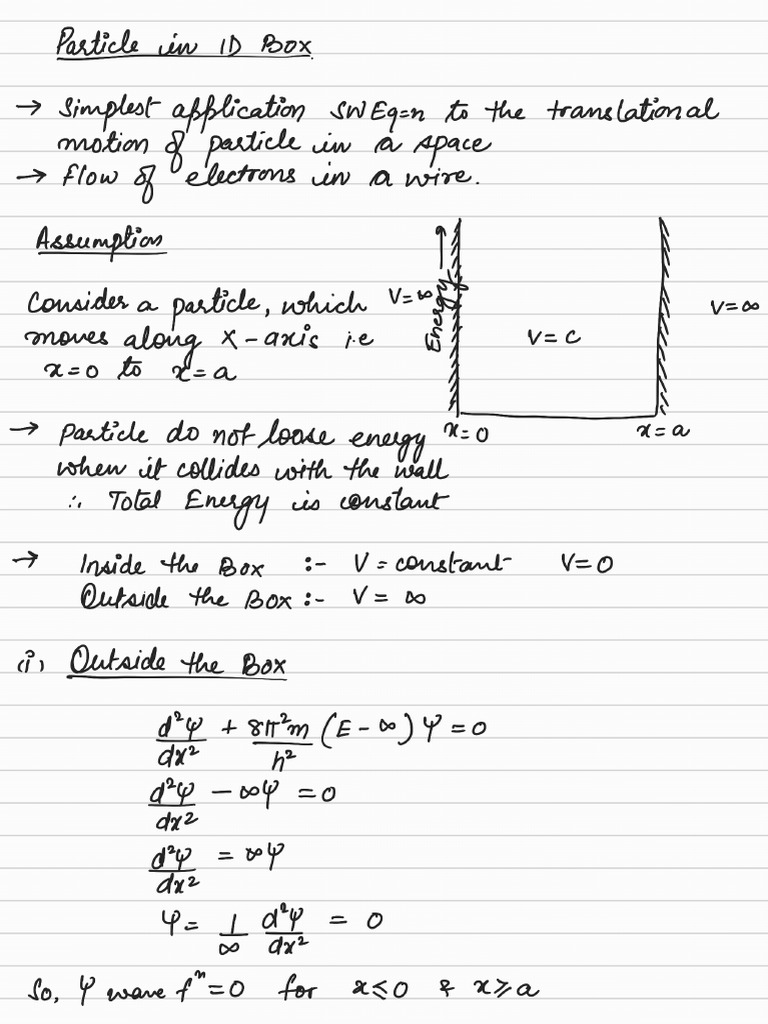 Particle in 1D Box
→ Simplest application SWEq=n to the translational
motion of particle in a space
→ Flow of electrons in a wire.
Assumption
Consider a particle, which
moves along x-axis i.e
x=0 to x=a
V=∞
Energy →
V=c
V=∞
x=0
x=a
→ Particle do not loose energy
when it collides with the wall
∴ Total Energy is constant
→ Inside the Box :- V = constant V=0
Outside the Box :- V = ∞
(i) Outside the Box
d²ψ/dx² + 8π²m/h² (E - ∞) ψ = 0
d²ψ/dx² - ∞ψ = 0
d²ψ/dx² = ∞ψ
ψ = 1/∞ d²ψ/dx² = 0
So, ψ wave fⁿ = 0 for x≤0 & x≥a